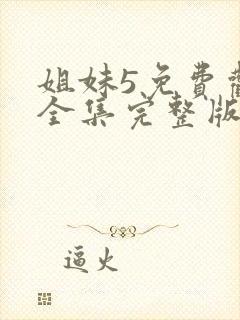 姐妹5免费
全集完整版
逼火